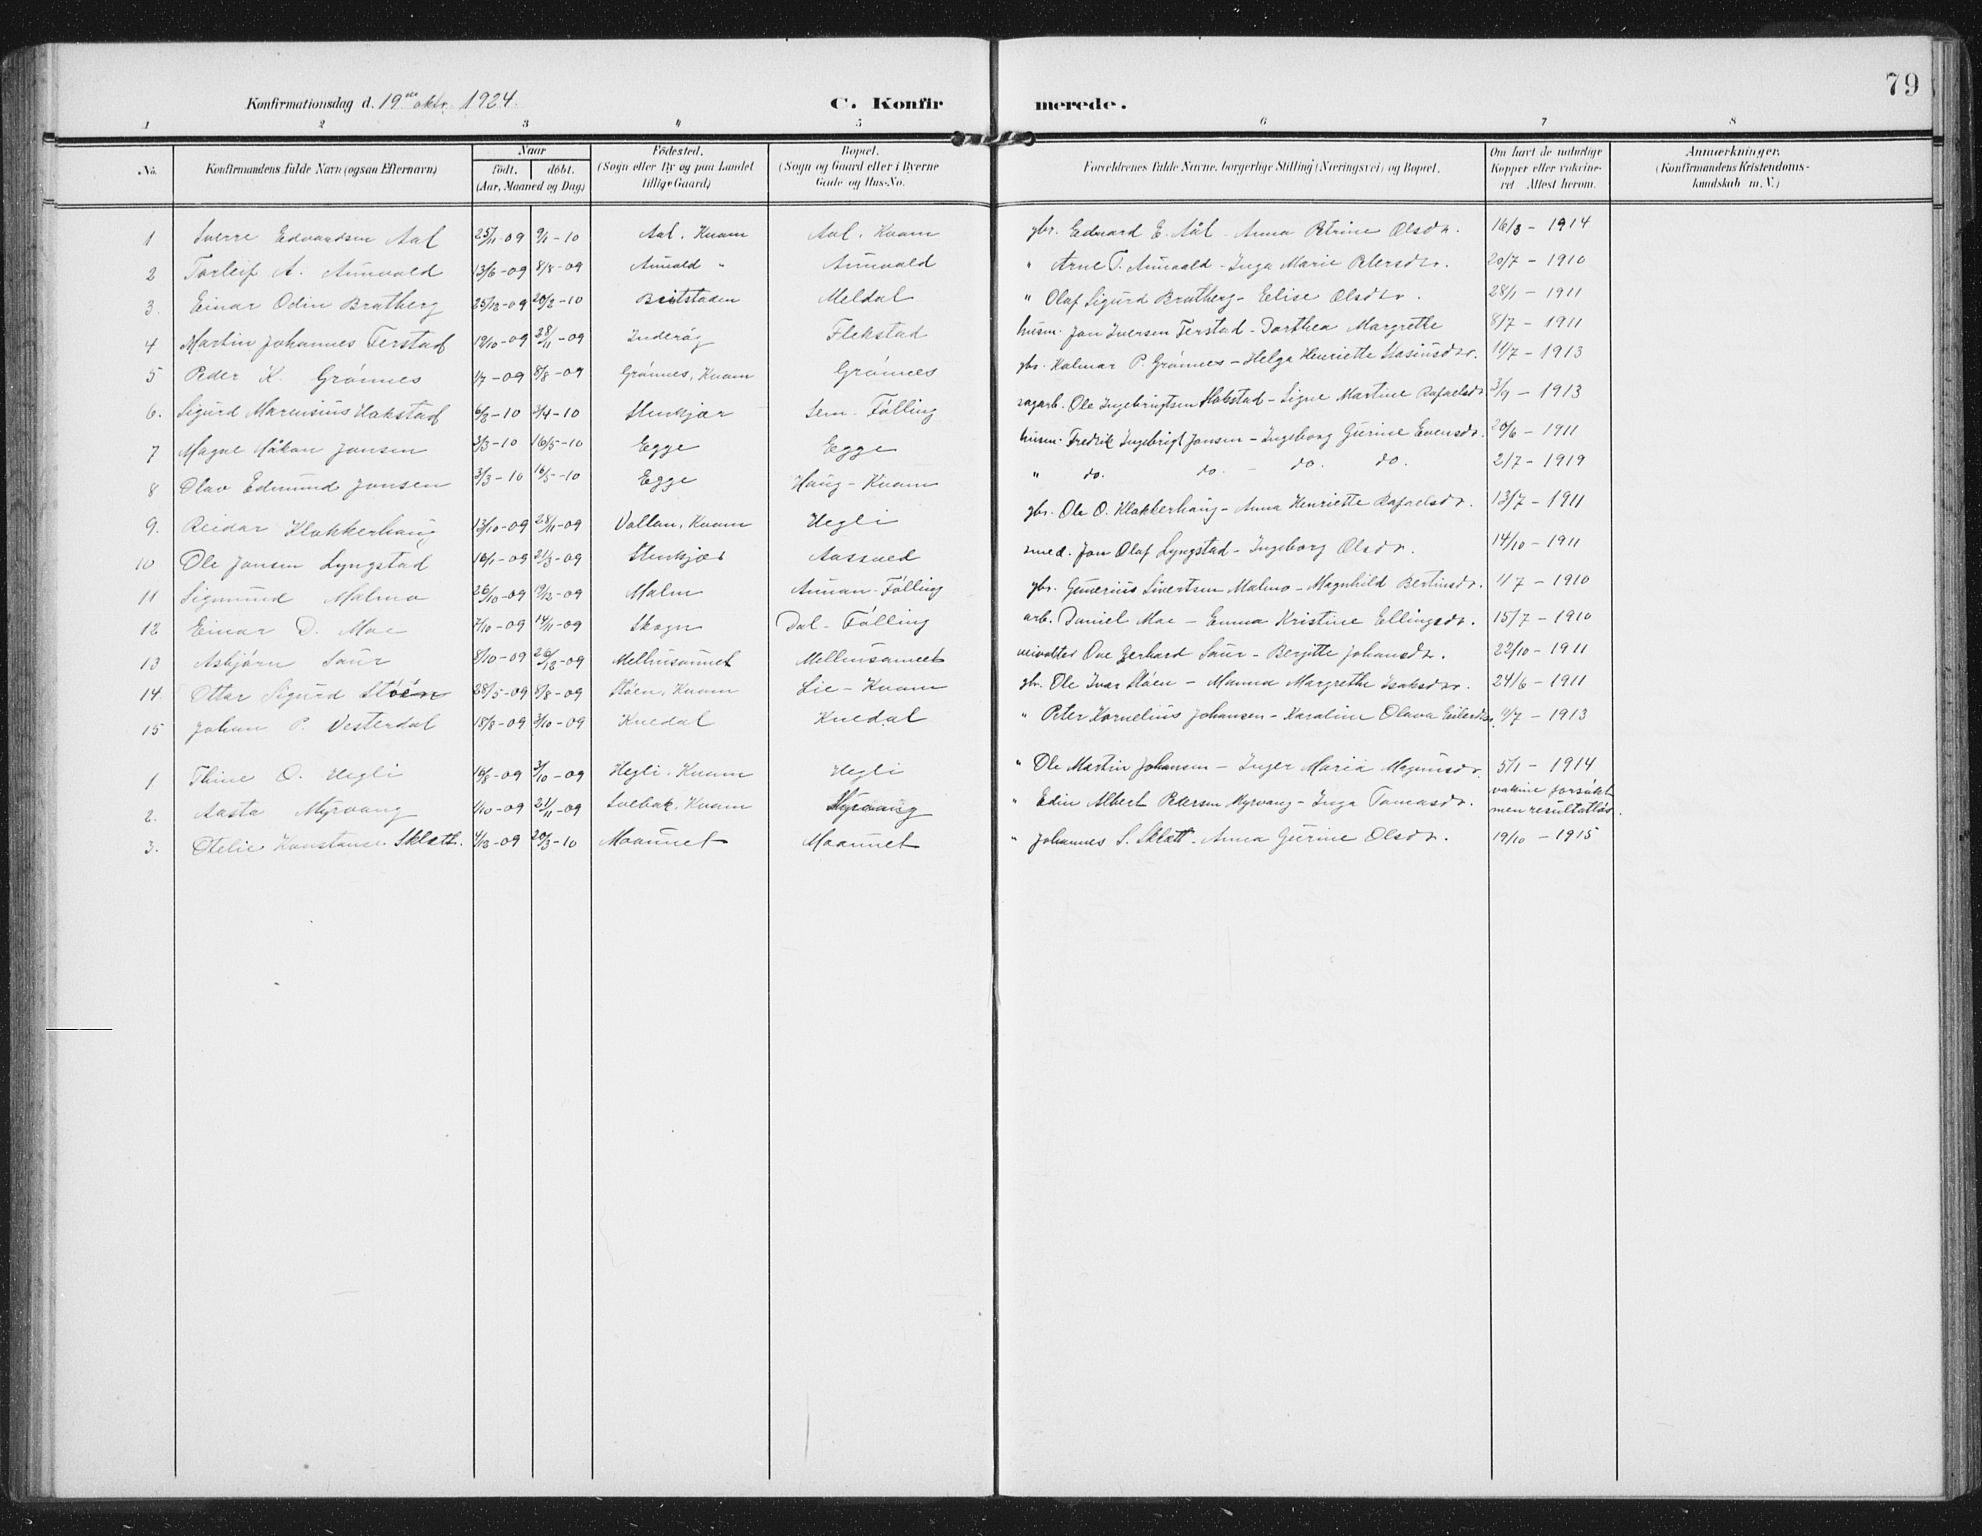 79
Konfirmationsdag d. 19de oktr. 1924.
C. Konfirmerede.
1 2 3 4 5 6 7 8
No. Konfirmandens fulde Navn (ogsaa Efternavn) Naar født. døbt. (Aar, Maaned og Dag) Fødested. (Sogn eller By og paa Landet tillige Gaard) Bopæl. (Sogn og Gaard eller i Byerne Gade og Hus-No. Forældrenes fulde Navne, borgerlige Stilling (Næringsvei) og Bopæl. Om havt de naturlige Kopper eller vakcineret Attest herom. Anmærkninger. (Konfirmandens Kristendomskundskab m. V.)
1 Sverre Edvardsen Aal 25/11-09 9/1-10 Aal, Kvam Aal, Kvam gbr. Edvard E. Aal - Anna Petrine Olsdr. 16/3 - 1914
2 Torleif A. Aunvold 13/6-09 8/8-09 Aunvald " Aunvald " Arne T. Aunvald - Inga Marie Petersdr. 20/7 - 1910
3. Einar Odin Bratberg 25/12-09 20/2-10 Beitstaden Meldal " Olaf Sigurd Bratberg - Eelise Olsdr. 28/1 - 1911
4 Martin Johannes Ferstad 19/10-09 28/11-09 Inderøy Flekstad husm. Jon Iversen Ferstad - Dorthea Margrethe 8/7 - 1911
5 Peder K. Grønnes 1/7-09 8/8-09 Grønnes, Kvam Grønnes gbr. Kalmar P. Grønnes - Helga Henriette Stasiusdr. 11/7 - 1913
6. Sigurd Marensius Hakstad 6/2-10 3/4-10 Stenkjær Sem - Følling sagarb. Ole Ingebrigtsen Hakstad - Signe Martine Rafaelsdr. 3/7 - 1913
7 Magne Håkon Jonsen 3/3-10 16/5-10 Egge Egge husm. Fredrik Ingebrigt Jonsen - Ingeborg Gurine Evensdr. 20/6 - 1911
8 Olav Edmund Jonsen 3/3-10 16/5-10 Egge Haug - Kvam " do. do. - do. do. 2/7 - 1919
9. Reidar Klokkerhaug 13/10-09 28/11-09 Vollan, Kvam Hegli gbr. Ole O. Klokkerhaug - Anna Henriette Rafaelsdr. 13/7 - 1911
10 Ole Jonsen Lyngstad 16/1-09 21/3-09 Stenkjær Aassved smed. Jon Olaf Lyngstad - Ingeborg Olsdr. 14/10 - 1911
11 Sigmund Malmo 26/10-09 19/12-09 Malm Annan - Følling gbr. Gunerius Sivertsen Malmo - Magnhild Bertinsdr. 1/7 - 1910
12 Einar D. Moe 7/10-09 14/11-09 Skogn Dal - Følling arb. Daniel Moe - Emma Kristine Ellingsdr. 15/7 - 1910
13 Asbjørn Saur 8/10-09 26/12-09 Melhusaunet Melhusaunet veivokter Ove Gerhard Saur - Bergitte Johansdr. 22/10 - 1911
14. Ottar Sigurd Støen 28/5-09 8/8-09 Støen, Kvam Lie - Kvam gbr. Ole Ivar Støen - Manna Margrethe Isaksdr. 24/6 - 1911
15 Johan P. Vesterdal 18/8-09 3/10-09 Knedal Knedal " Peter Kornelius Johansen - Karoline Olava Eilertsdr. 11/7 - 1913
1 Thine O. Hegli 16/8-09 3/10-09 Hegli, Kvam Hegli " Ole Martin Johansen - Inger Maria Magnusdr. 5/1 - 1914
2. Aasta Myrvang 1/10-09 21/11-09 Svebak, Kvam Myrvang " Edin Albert Petersen Myrvang - Inga Tomasdr. vaksine forsøkt men resultatløs.
3. Otelie Konstanse Sklett. 4/12-09 20/3-10 Moaunet Moaunet " Johannes S. Sklett - Anna Gurine Olsdr. 19/10 - 1915